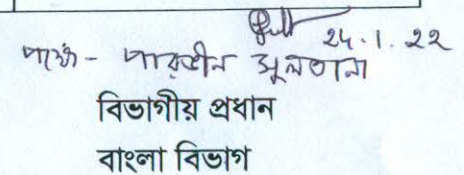 24.1.22
পক্ষে - পারভীন সুলতানা
বিভাগীয় প্রধান
বাংলা বিভাগ